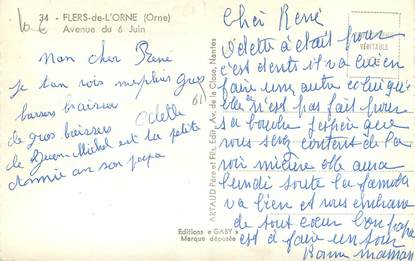 10 €
34 - FLERS-de-L'ORNE (Orne)
Avenue du 6 Juin
Mon cher René
je tan vois mes plus gros
bassers baiseur
de gros baissers Odette
de Jean-Michel est la petite
donnie an son papa
61
ARTAUD Père et Fils, Edit., Av. de la Close, Nantes
Editions « GABY »
Marque déposée
VÉRITABLE
Cher René
Odette a était pour
c'est dents il va lui en
faire une autre celui qu'
elle a n'est pas fait pour
sa bouche j'espère que
vous serz content de la
voir mieure elle aura
lundi toute la famille
va bien et vous embrase
de tout coeur bon papa
est a faire un tour
Bonne maman